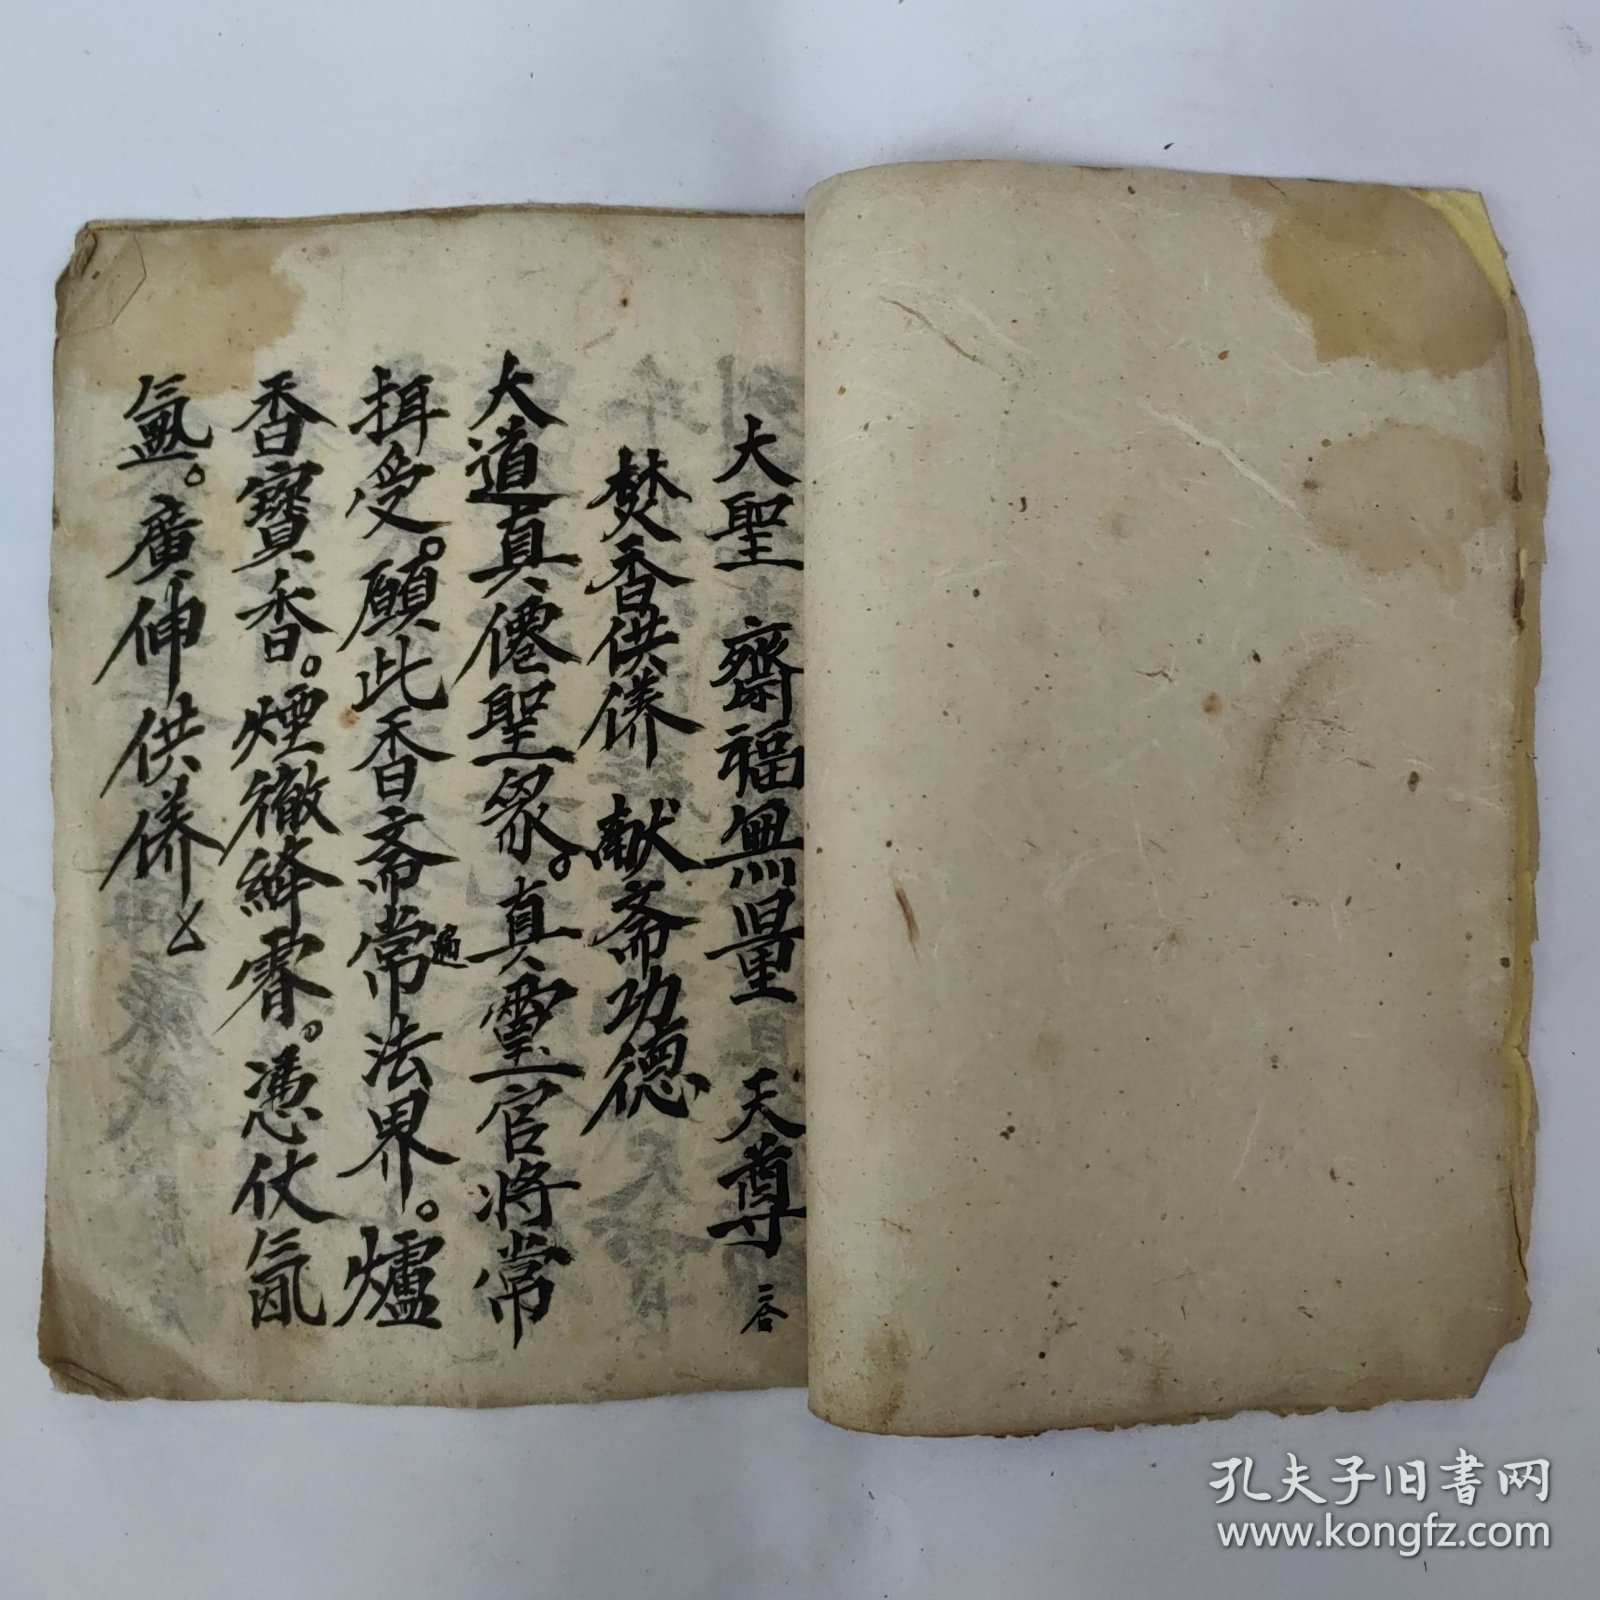 大聖 齋福無量 天尊 二合
焚香供養 献斋功德
大道真僊聖眾。真靈官將常
受。願此香斋常遍法界。爐
香寶香。煙徹絳霄。憑仗氤
氲。廣伸供養
孔夫子旧书网
www.kongfz.com